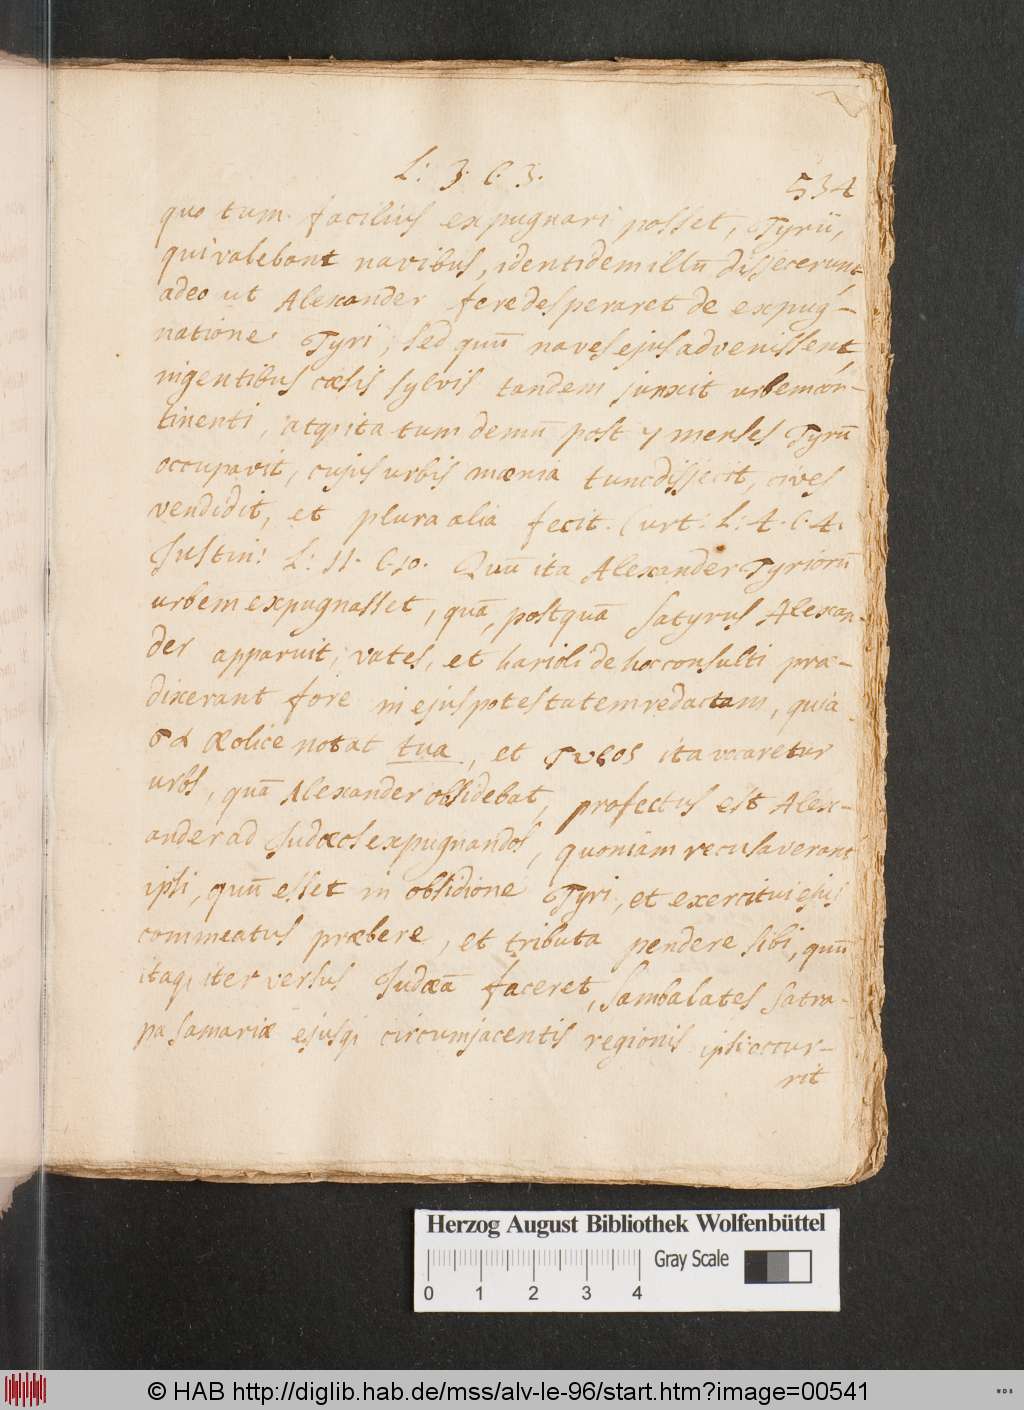 L: 3. C. 3.
534
quo tum facilius expugnari posset, Tyrii,
qui valebant navibus, identidem illũ disjecerunt,
adeo ut Alexander fere desperaret de expug-
natione Tyri; sed quũ naves ejus advenissent,
ingentibus cæsis sylvis tandem junxit urbem con-
tinenti, atq; ita tum demũ post 7 menses Tyrũ
occupavit, cujus urbis mænia tunc disjecit, cives
vendidit, et plura alia fecit. Curt: L: 4. C. 4.
Justin: L: 11. C. 10. Quũ ita Alexander Tyriorũ
urbem expugnasset, quã, postquã Satyrus Alexan-
der apparuit, vates, et harioli de hoc consulti præ-
dixerant fore in ejus potestatem redactam, quia
σα Æolice notat tua, et Τυρος ita vocaretur
urbs, quã Alexander obsidebat, profectus est Alex-
ander ad Judæos expugnandos, quoniam recusaverant
ipsi, quũ esset in obsidione Tyri, et exercitui ejus
commeatus præbere, et tributa pendere sibi, quũ
itaq; iter versus Judæã faceret, Sambalates Satra-
pa Samariæ ejusq; circumjacentis regionis ipsi occur-
rit
Herzog August Bibliothek Wolfenbüttel
Gray Scale
0 1 2 3 4
© HAB http://diglib.hab.de/mss/alv-le-96/start.htm?image=00541